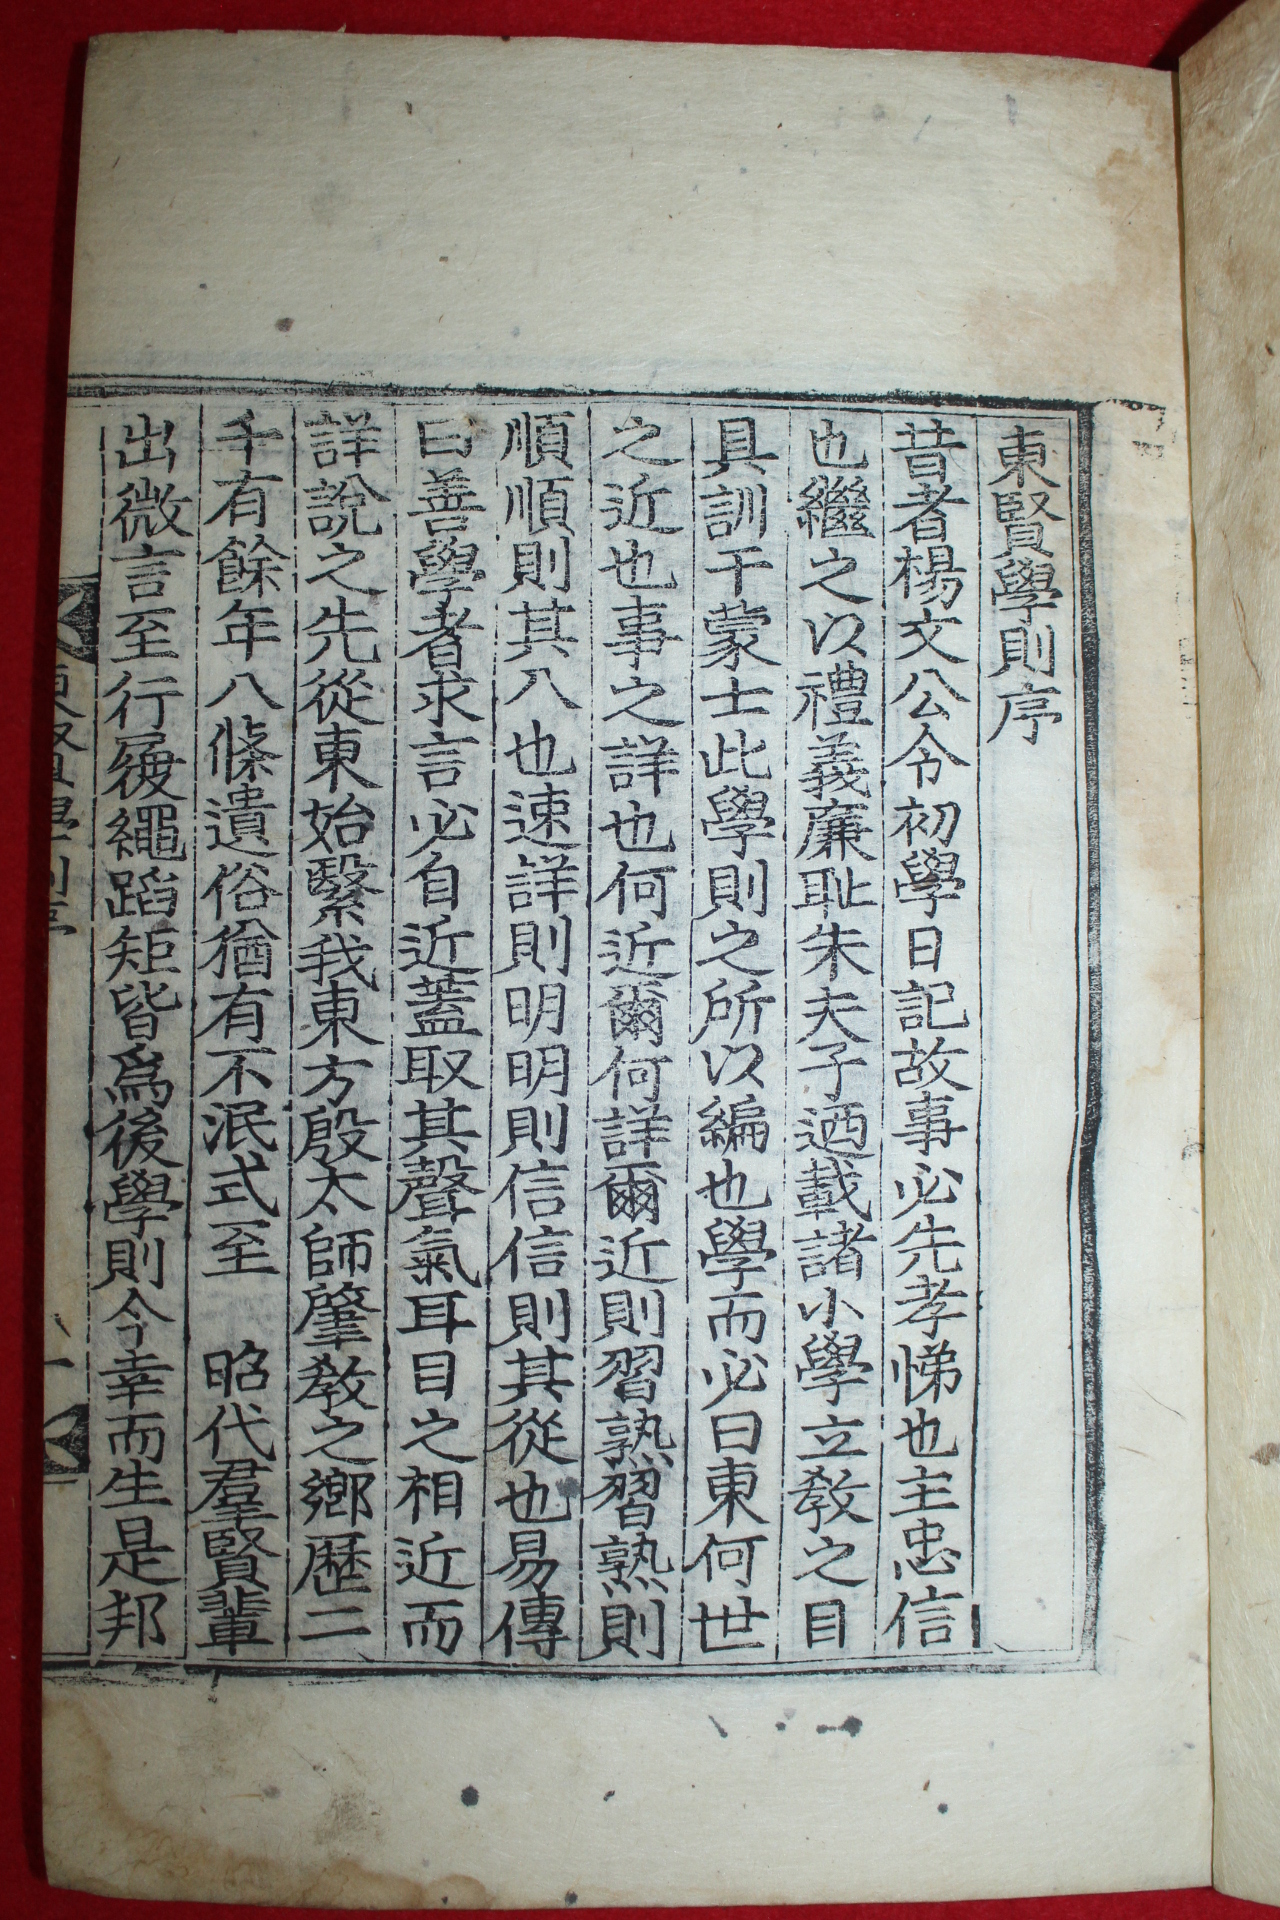 東賢學則序
昔者楊文公令初學日記故事必先孝悌也主忠信
也繼之以禮義廉恥朱夫子迺載諸小學立敎之目
具訓干蒙士此學則之所以編也學而必曰東何世
之近也事之詳也何近爾何詳爾近則習熟習熟則
順順則其入也速詳則明明則信信則其從也易傳
曰善學者求言必自近蓋取其聲氣耳目之相近而
詳說之先從東始繄我東方殷太師肇敎之鄉歷二
千有餘年八條遺俗猶有不泯式至 昭代羣賢輩
出微言至行履繩蹈矩皆爲後學則今幸而生是邦